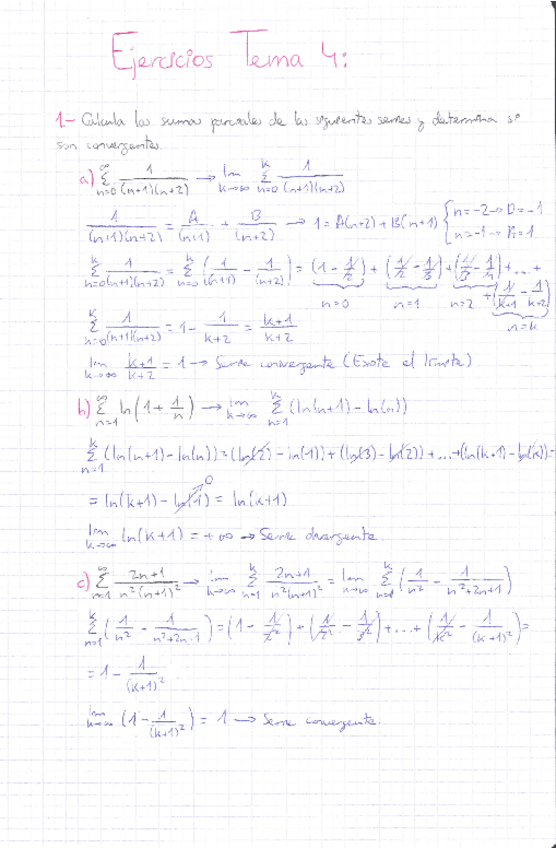 Ejercicios Tema 4:
1- Calcula las sumas parciales de las siguientes series y determina si
son convergentes.
a) ∑_{n=0}^{∞} 1/((n+1)(n+2)) → lim_{k→∞} ∑_{n=0}^{k} 1/((n+1)(n+2))
1/((n+1)(n+2)) = A/(n+1) + B/(n+2) → 1 = A(n+2) + B(n+1) { n=-2 → B=-1
n=-1 → A=1
∑_{n=0}^{k} 1/((n+1)(n+2)) = ∑_{n=0}^{k} (1/(n+1) - 1/(n+2)) = (1 - 1/2) + (1/2 - 1/3) + (1/3 - 1/4) + ... +
+ (1/(k+1) - 1/(k+2))
n=0 n=1 n=2
n=k
∑_{n=0}^{k} 1/((n+1)(n+2)) = 1 - 1/(k+2) = (k+1)/(k+2)
lim_{k→∞} (k+1)/(k+2) = 1 → Serie convergente (Existe el límite)
b) ∑_{n=1}^{∞} ln(1 + 1/n) → lim_{k→∞} ∑_{n=1}^{k} (ln(n+1) - ln(n))
∑_{n=1}^{k} (ln(n+1) - ln(n)) = (ln(2) - ln(1)) + (ln(3) - ln(2)) + ... + (ln(k+1) - ln(k)) =
= ln(k+1) - ln(1) 0 = ln(k+1)
lim_{k→∞} ln(k+1) = +∞ → Serie divergente.
c) ∑_{n=1}^{∞} (2n+1)/(n²(n+1)²) → lim_{k→∞} ∑_{n=1}^{k} (2n+1)/(n²(n+1)²) = lim_{n→∞} ∑_{n=1}^{k} (1/n² - 1/(n²+2n+1))
∑_{n=1}^{k} (1/n² - 1/(n²+2n+1)) = (1 - 1/2²) + (1/2² - 1/3²) + ... + (1/k² - 1/(k+1)²) =
= 1 - 1/(k+1)²
lim_{k→∞} (1 - 1/(k+1)²) = 1 → Serie convergente.